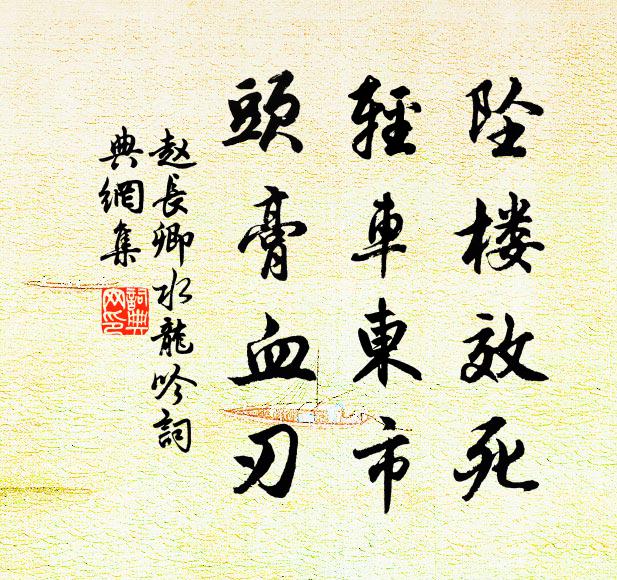 坠楼效死
輕車東市
頭膏血刃
赵長卿水龍吟詞
典網集
詞典
网印